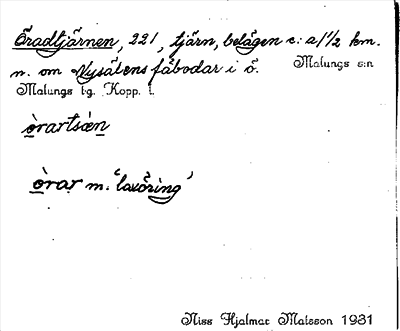 Öradtjärnen, 221, tjärn, belägen c:a 1/2 km.
n. om Nysätens fäbodar i ö. Malungs s:n
Malungs tg. Kopp. l.
òrartsæn
òrar m. 'lavöring'
Niss Hjalmar Matsson 1931